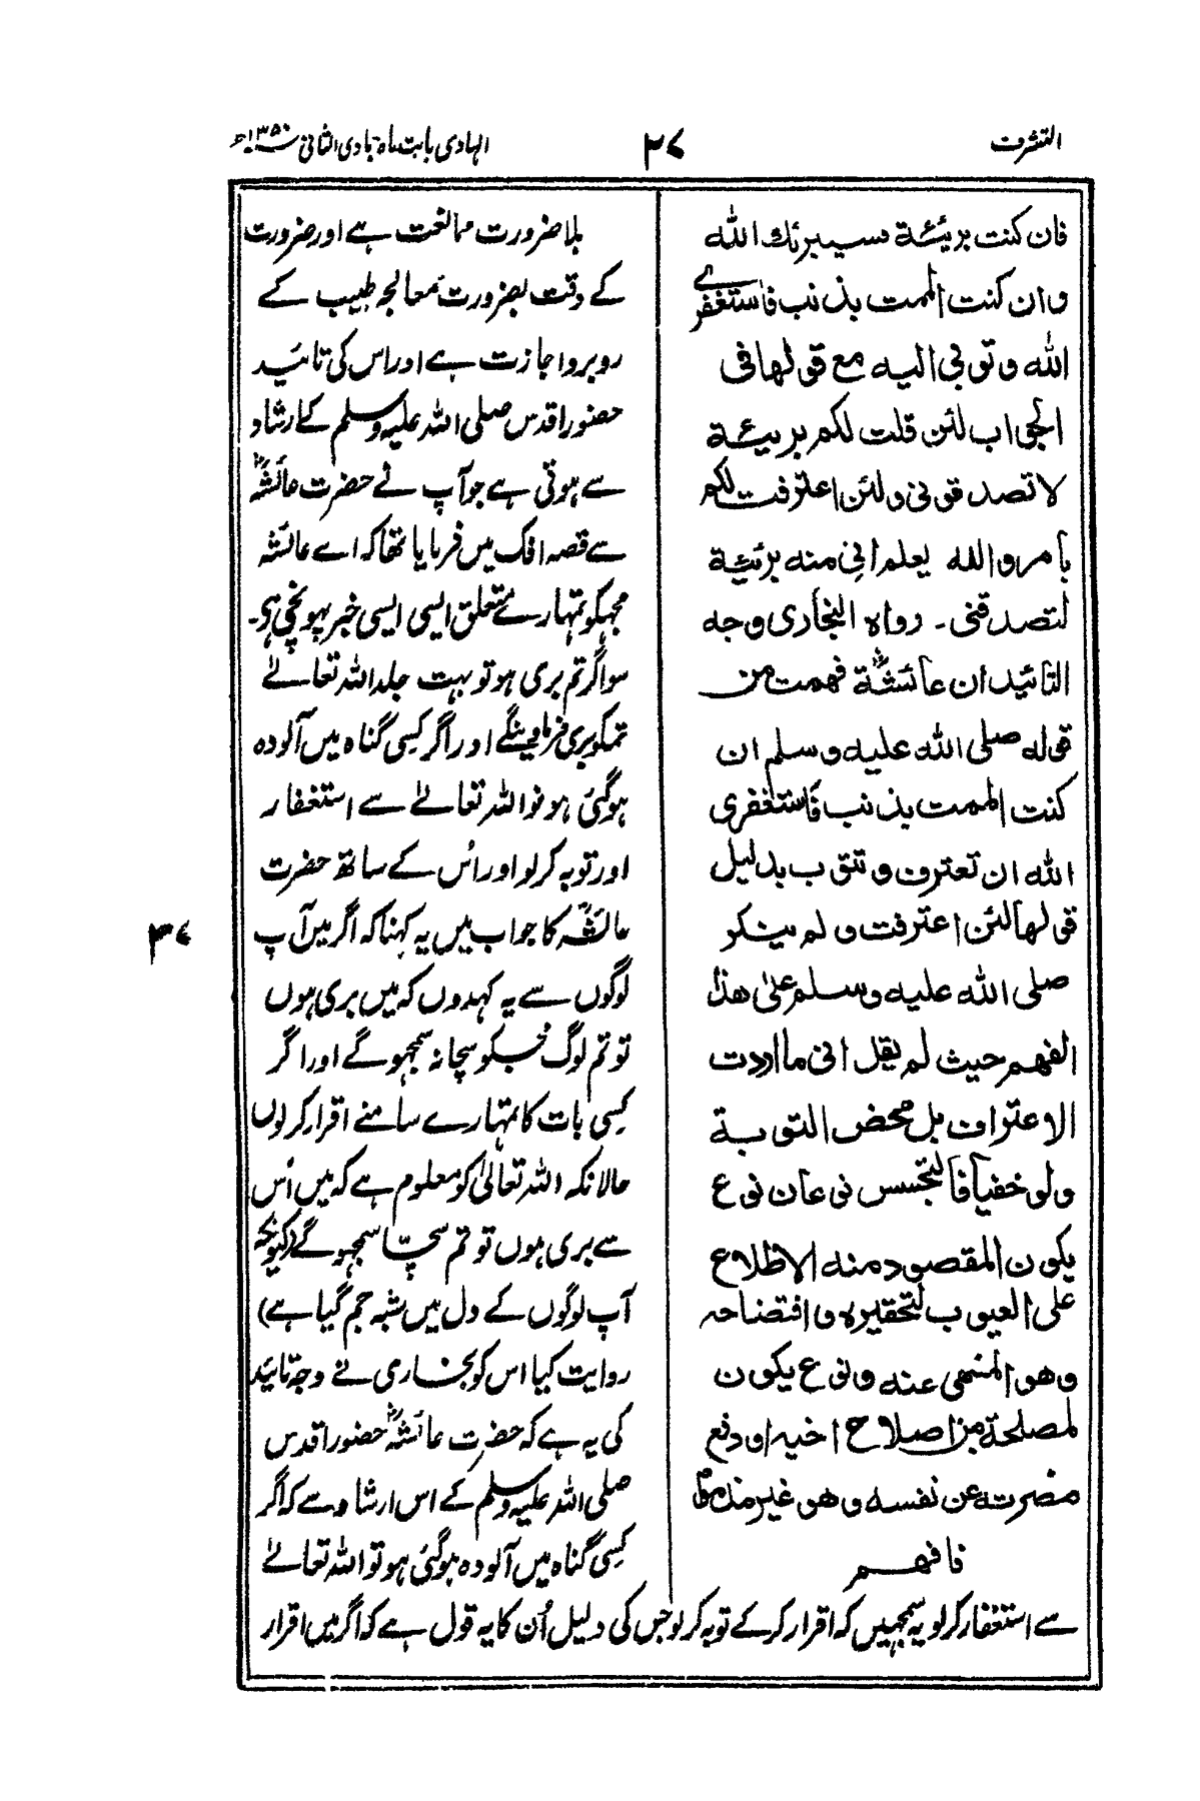 التشرف
۲۷
الہادی بابت ماہ جمادی الثانی ۱۳۵۰ھ
فان كنت بريئة فسيبرئك الله
وان كنت الممت بذنب فاستغفرے
الله وتوبي اليه مع قولها فى
الجواب لئن قلت لكم بريئة
لا تصدقونى ولئن اعترفت لكم
بامر والله يعلم انى منه بريئة
لتصدقنى ۔ رواه البخارى وجه
التائيد ان عائشةؓ فهمت من
قوله صلى الله عليه وسلم ان
كنت الممت بذنب فاستغفرى
الله ان تعترف وتتوب بدليل
قولها لئن اعترفت ولم ينكر
صلى الله عليه وسلم على هذا
الفهم حيث لم يقل انى ما اردت
الاعتراف بل محض التوبة
ولو خفيا فالتجسس نوعان نوع
يكون المقصود منه الاطلاع
على العيوب لتحقيره وافتضاحه
وهو المنهى عنه ونوع يكون
لمصلحة من اصلاح اخيه او دفع
مضرته عن نفسه وهو غير مذموم
فافهم
بلا ضرورت ممانعت ہے اور ضرورت
کے وقت بضرورت معالجہ طبیب کے
روبرو اجازت ہے اور اس کی تائید
حضور اقدس صلی اللہ علیہ وسلم کے ارشاد
سے ہوتی ہے جو آپ نے حضرت عائشہؓ
سے قصہ افک میں فرمایا تھا کہ اے عائشہ
مجہکو تمہارے متعلق ایسی ایسی خبر پہونچی ہی۔
سو اگر تم بری ہو تو بہت جلد اللہ تعالےٰ
تمکو بری فرماوینگے اور اگر کسی گناہ میں آلودہ
ہوگئی ہو تو اللہ تعالےٰ سے استغفار
اور توبہ کرلو اور اُس کے ساتھ حضرت
عائشہؓ کا جواب میں یہ کہنا کہ اگر میں آپ
۳۷
لوگوں سے یہ کہدوں کہ میں بری ہوں
تو تم لوگ مجہکو سچا نہ سمجہو گے اور اگر
کسی بات کا تمہارے سامنے اقرار کرلوں
حالانکہ اللہ تعالیٰ کو معلوم ہے کہ میں اُس
سے بری ہوں تو تم سچّا سمجہو گے (کیونکہ
آپ لوگوں کے دل میں شبہ جم گیا ہے)
روایت کیا اس کو بخاری نے وجہ تائید
کی یہ ہے کہ حضرت عائشہؓ حضور اقدس
صلی اللہ علیہ وسلم کے اس ارشاد سے کہ اگر
کسی گناہ میں آلودہ ہوگئی ہو تو اللہ تعالےٰ
سے استغفار کرلو یہ سمجہیں کہ اقرار کرکے توبہ کرلو جس کی دلیل اُن کا یہ قول ہے کہ اگر میں اقرار